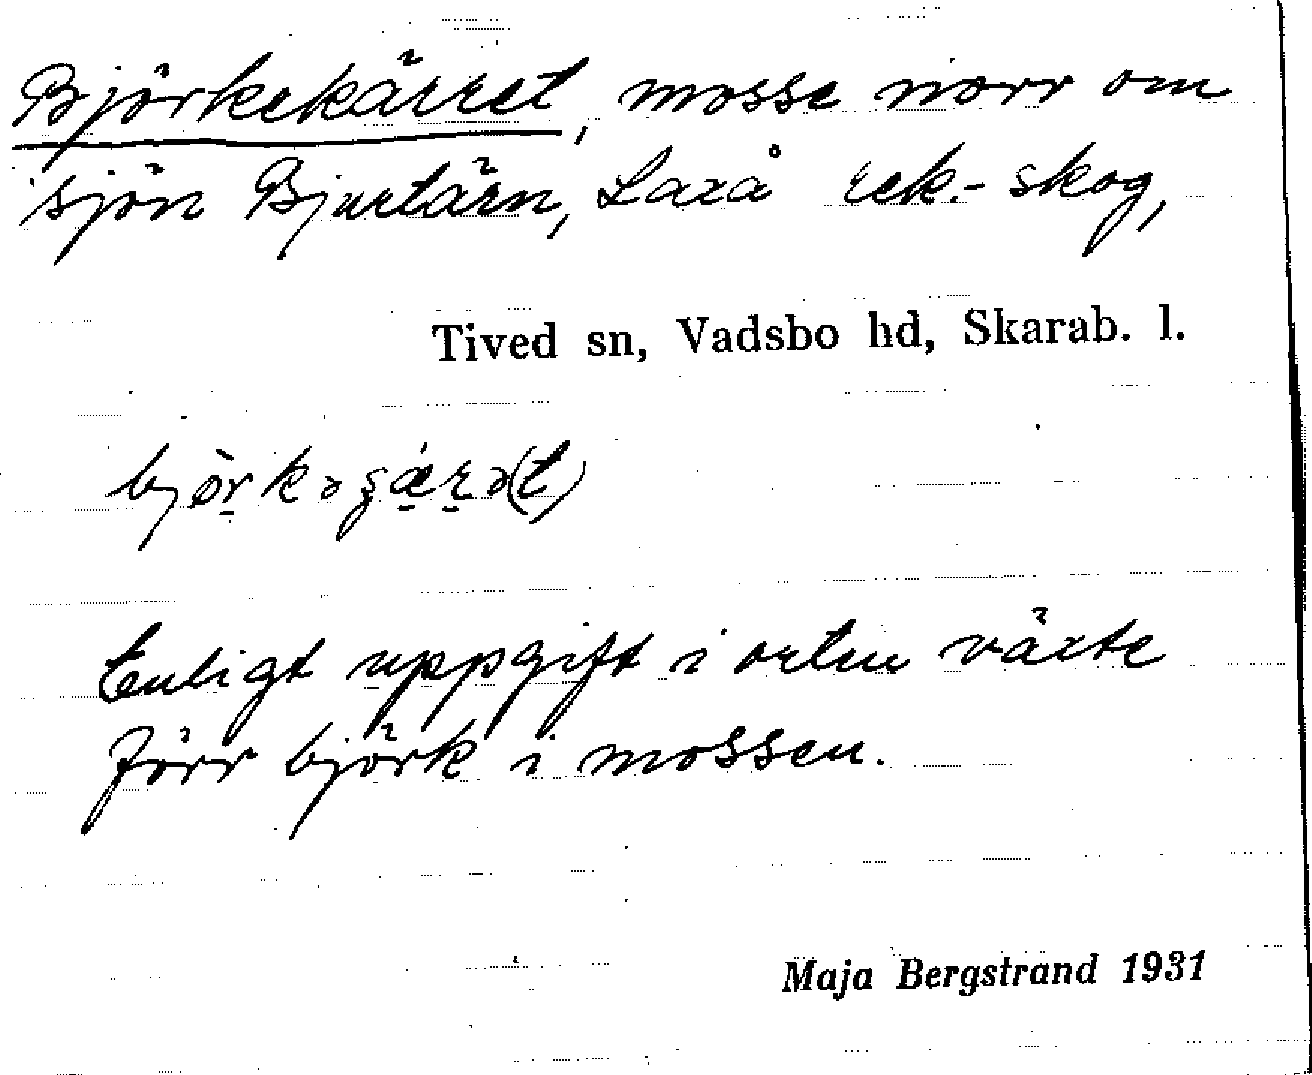 Björkekärret, mosse norr om
sjön Bjurtärn, Laxå rek.-skog,
Tived sn, Vadsbo hd, Skarab. l.
Enligt uppgift i orten växte
förr björk i mossen.
Maja Bergstrand 1931